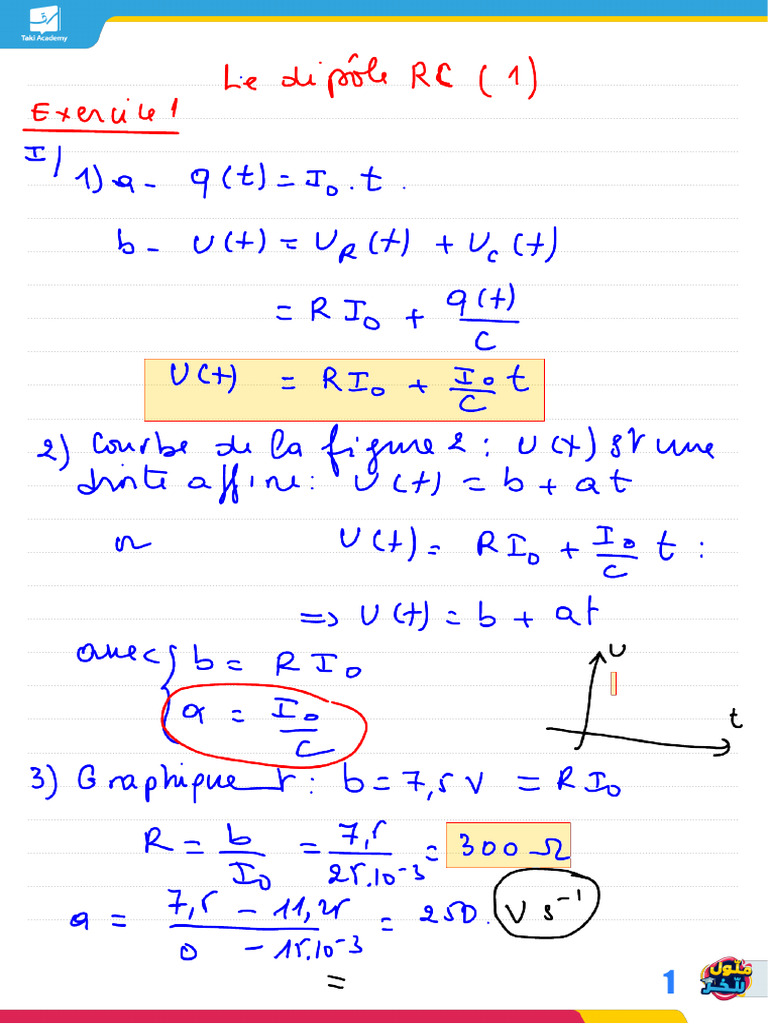 Taki Academy
Le dipôle RC (1)
Exercice 1
I/ 1) a- q(t) = I₀.t.
b- U(t) = U_R(t) + U_C(t)
= R I₀ + q(t)/C
U(t) = R I₀ + I₀/C t
2) Courbe de la figure 2 : U(t) est une
droite affine : U(t) = b + at
or U(t) = R I₀ + I₀/C t :
=> U(t) = b + at
avec { b = R I₀
a = I₀/C
U
t
3) Graphique t : b = 7,5 V = R I₀
R = b/I₀ = 7,5/25.10⁻³ = 300 Ω
a = 7,5 - 11,25 / 0 - 15.10⁻³ = 250. V s⁻¹
=
1